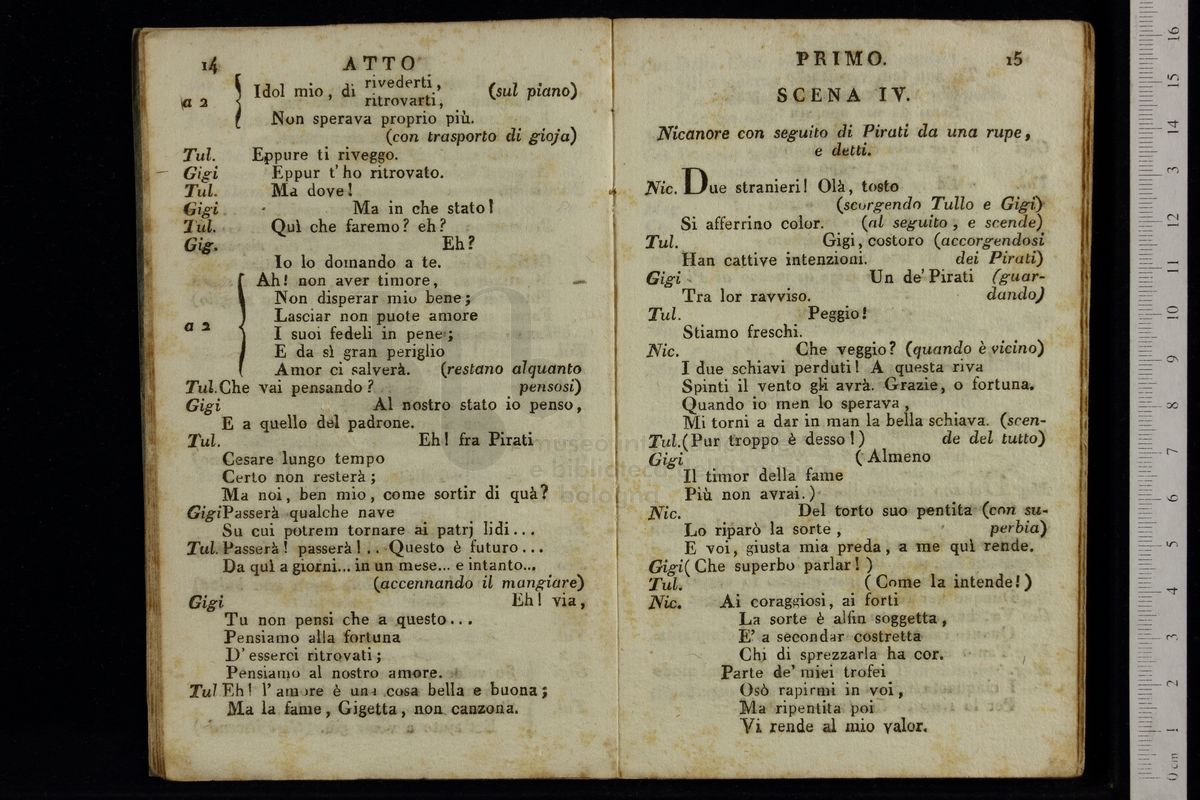 14 ATTO
a 2 Idol mio, di rivederti, (sul piano)
ritrovarti,
Non sperava proprio più.
(con trasporto di gioja)
Tul. Eppure ti riveggo.
Gigi Eppur t' ho ritrovato.
Tul. Ma dove!
Gigi Ma in che stato!
Tul. Quì che faremo? eh?
Gig. Eh?
Io lo domando a te.
a 2 Ah! non aver timore,
Non disperar mio bene;
Lasciar non puote amore
I suoi fedeli in pene;
E da sì gran periglio
Amor ci salverà. (restano alquanto
Tul. Che vai pensando? pensosi)
Gigi Al nostro stato io penso,
E a quello del padrone.
Tul. Eh! fra Pirati
Cesare lungo tempo
Certo non resterà;
Ma noi, ben mio, come sortir di quà?
Gigi Passerà qualche nave
Su cui potrem tornare ai patrj lidi...
Tul. Passerà! passerà!.. Questo è futuro...
Da quì a giorni... in un mese... e intanto...
(accennando il mangiare)
Gigi Eh! via,
Tu non pensi che a questo...
Pensiamo alla fortuna
D' esserci ritrovati;
Pensiamo al nostro amore.
Tul Eh! l' amore è una cosa bella e buona;
Ma la fame, Gigetta, non canzona.
PRIMO. 15
SCENA IV.
Nicanore con seguito di Pirati da una rupe,
e detti.
Nic. Due stranieri! Olà, tosto
(scorgendo Tullo e Gigi)
Si afferrino color. (al seguito, e scende)
Tul. Gigi, costoro (accorgendosi
Han cattive intenzioni. dei Pirati)
Gigi Un de' Pirati (guar-
Tra lor ravviso. dando)
Tul. Peggio!
Stiamo freschi.
Nic. Che veggio? (quando è vicino)
I due schiavi perduti! A questa riva
Spinti il vento gli avrà. Grazie, o fortuna.
Quando io men lo sperava,
Mi torni a dar in man la bella schiava. (scen-
Tul. (Pur troppo è desso!) de del tutto)
Gigi (Almeno
Il timor della fame
Più non avrai.)
Nic. Del torto suo pentita (con su-
Lo riparò la sorte, perbia)
E voi, giusta mia preda, a me quì rende.
Gigi (Che superbo parlar!)
Tul. (Come la intende!)
Nic. Ai coraggiosi, ai forti
La sorte è alfin soggetta,
E' a secondar costretta
Chi di sprezzarla ha cor.
Parte de' miei trofei
Osò rapirmi in voi,
Ma ripentita poi
Vi rende al mio valor.